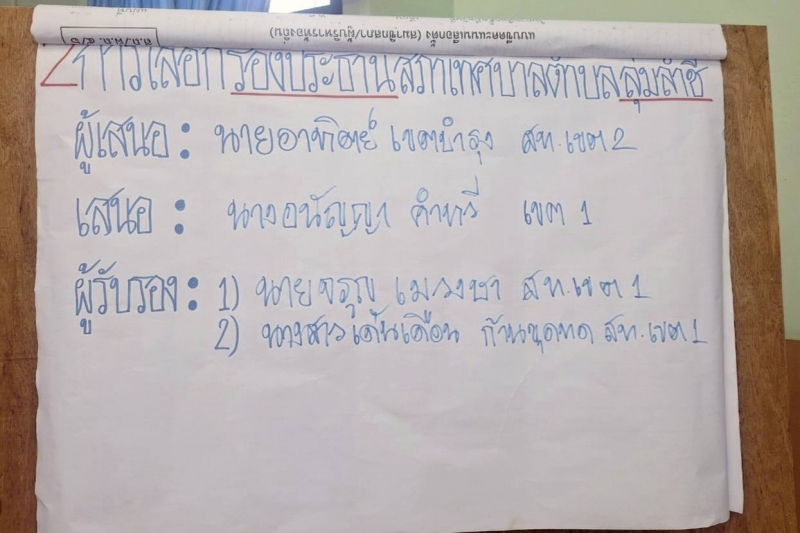 แบบขีดคะแนนเลือกตั้ง (สมาชิกสภา/ผู้บริหารท้องถิ่น)
2 การเลือกรองประธานสภาเทศบาลตำบลลุ่มลำชี
ผู้เสนอ : นายอาทิตย์ เขตบำรุง สท.เขต 2
เสนอ : นางอนัญญา คำทวี เขต 1
ผู้รับรอง : 1) นายจรูญ สท.เขต 1
2) นางสาวเด่นเดือน ก้านขุดทด สท.เขต 1